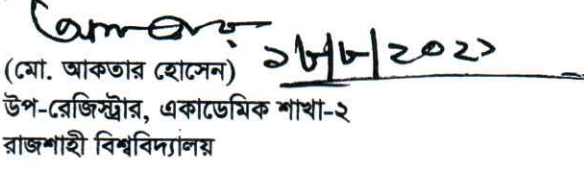 ১৮/৮/২০২১
(মো. আকতার হোসেন)
উপ-রেজিস্ট্রার, একাডেমিক শাখা-২
রাজশাহী বিশ্ববিদ্যালয়